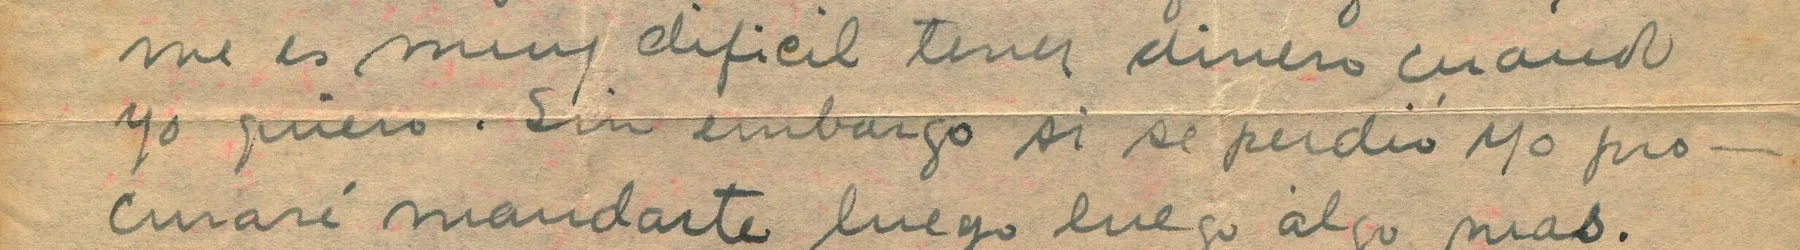 me es muy dificil tener dinero cuando
yo quiero. Sin embargo si se perdió yo pro—
curaré mandarte luego luego algo mas.